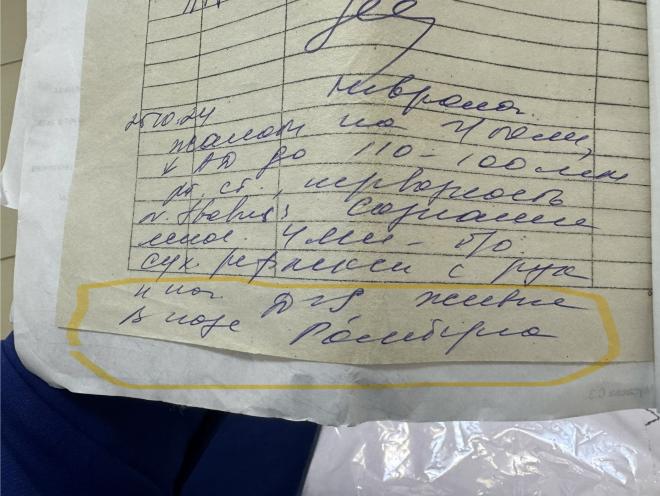 Невролог
25.10.24
Жалобы на г/боли,
↓ АД до 110-100 мм
рт. ст., нервозность
Сознание
ясное. ЧМН - б/о.
сух. рефлексы с рук
и ног D=S живые
В позе Ромберга